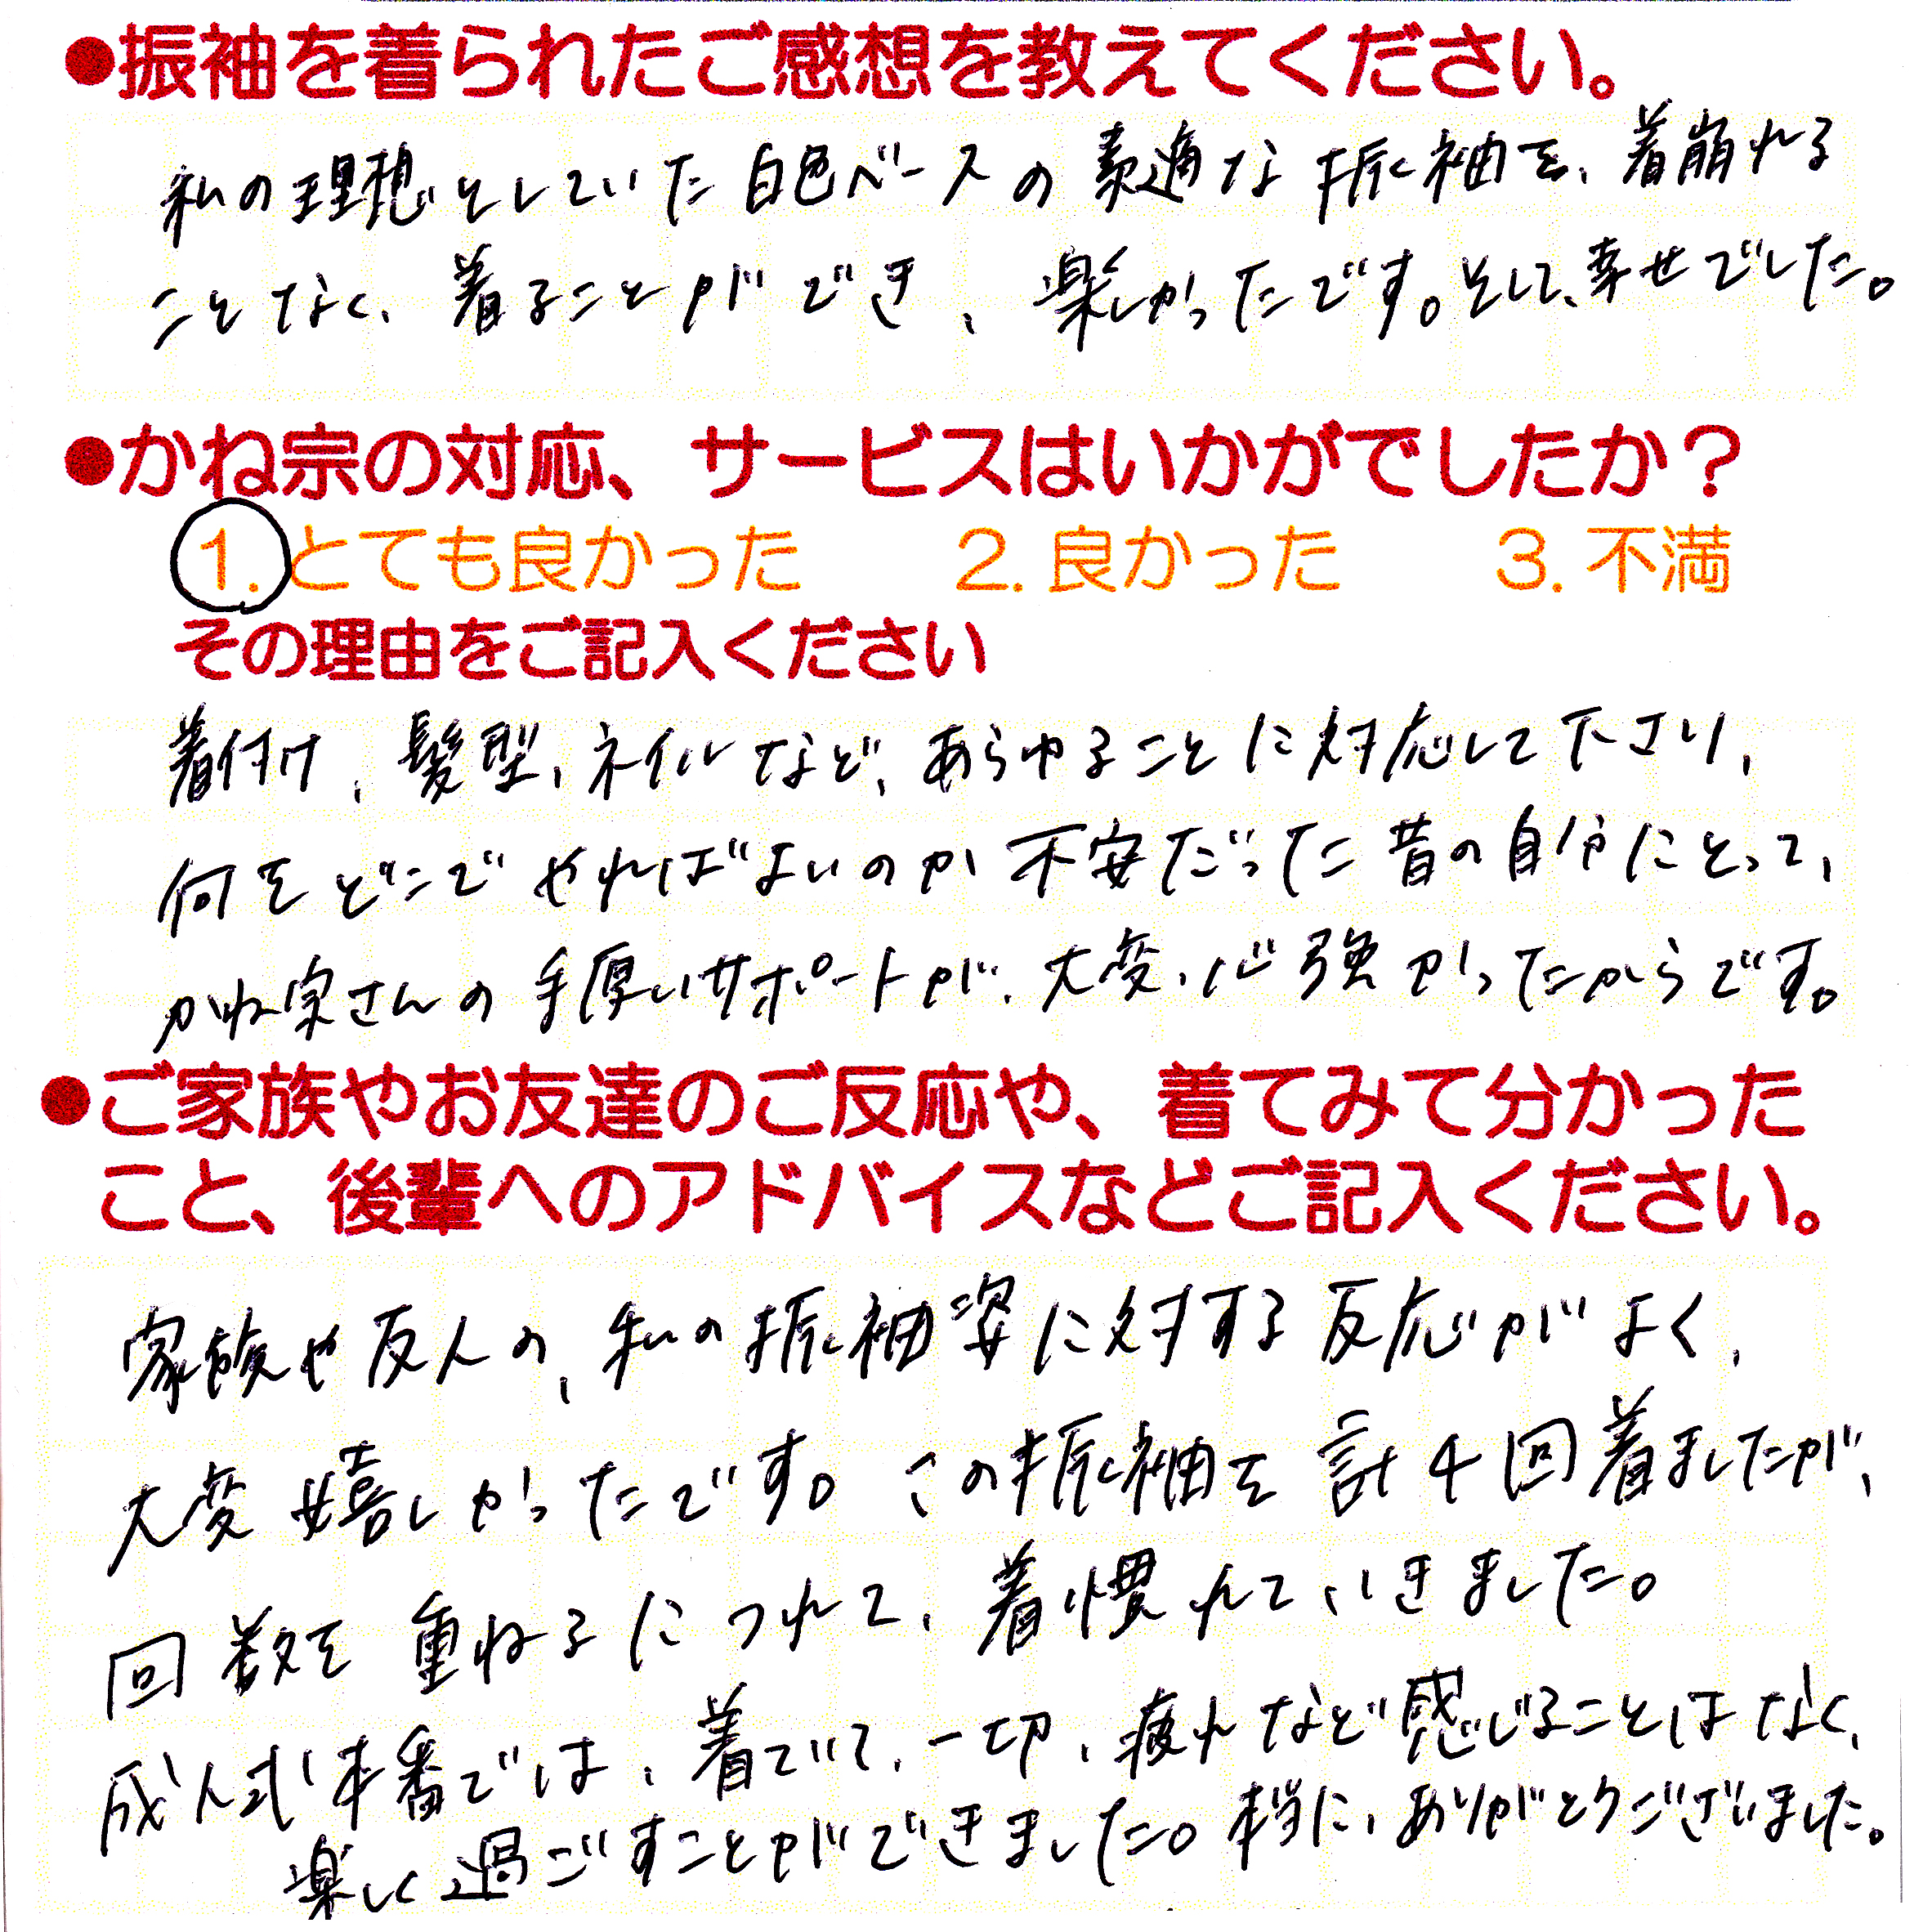 ●振袖を着られたご感想を教えてください。
私の理想としていた白色ベースの素適な振袖を、着崩れる
ことなく、着ることができ、楽しかったです。そして、幸せでした。
●かね宗の対応、サービスはいかがでしたか？
1. とても良かった 2. 良かった 3. 不満
その理由をご記入ください
着付け、髪型、ネイルなど、あらゆることに対応して下さり、
何をどこでやればよいのか不安だった昔の自分にとって、
かね宗さんの手厚いサポートが、大変、心強かったからです。
●ご家族やお友達のご反応や、着てみて分かった
こと、後輩へのアドバイスなどご記入ください。
家族や友人の、私の振袖姿に対する反応がよく、
大変嬉しかったです。この振袖を計4回着ましたが、
回数を重ねるにつれて、着慣れていきました。
成人式本番では、着ていて、一切、疲れなど感じることはなく、
楽しく過ごすことができました。本当に、ありがとうございました。